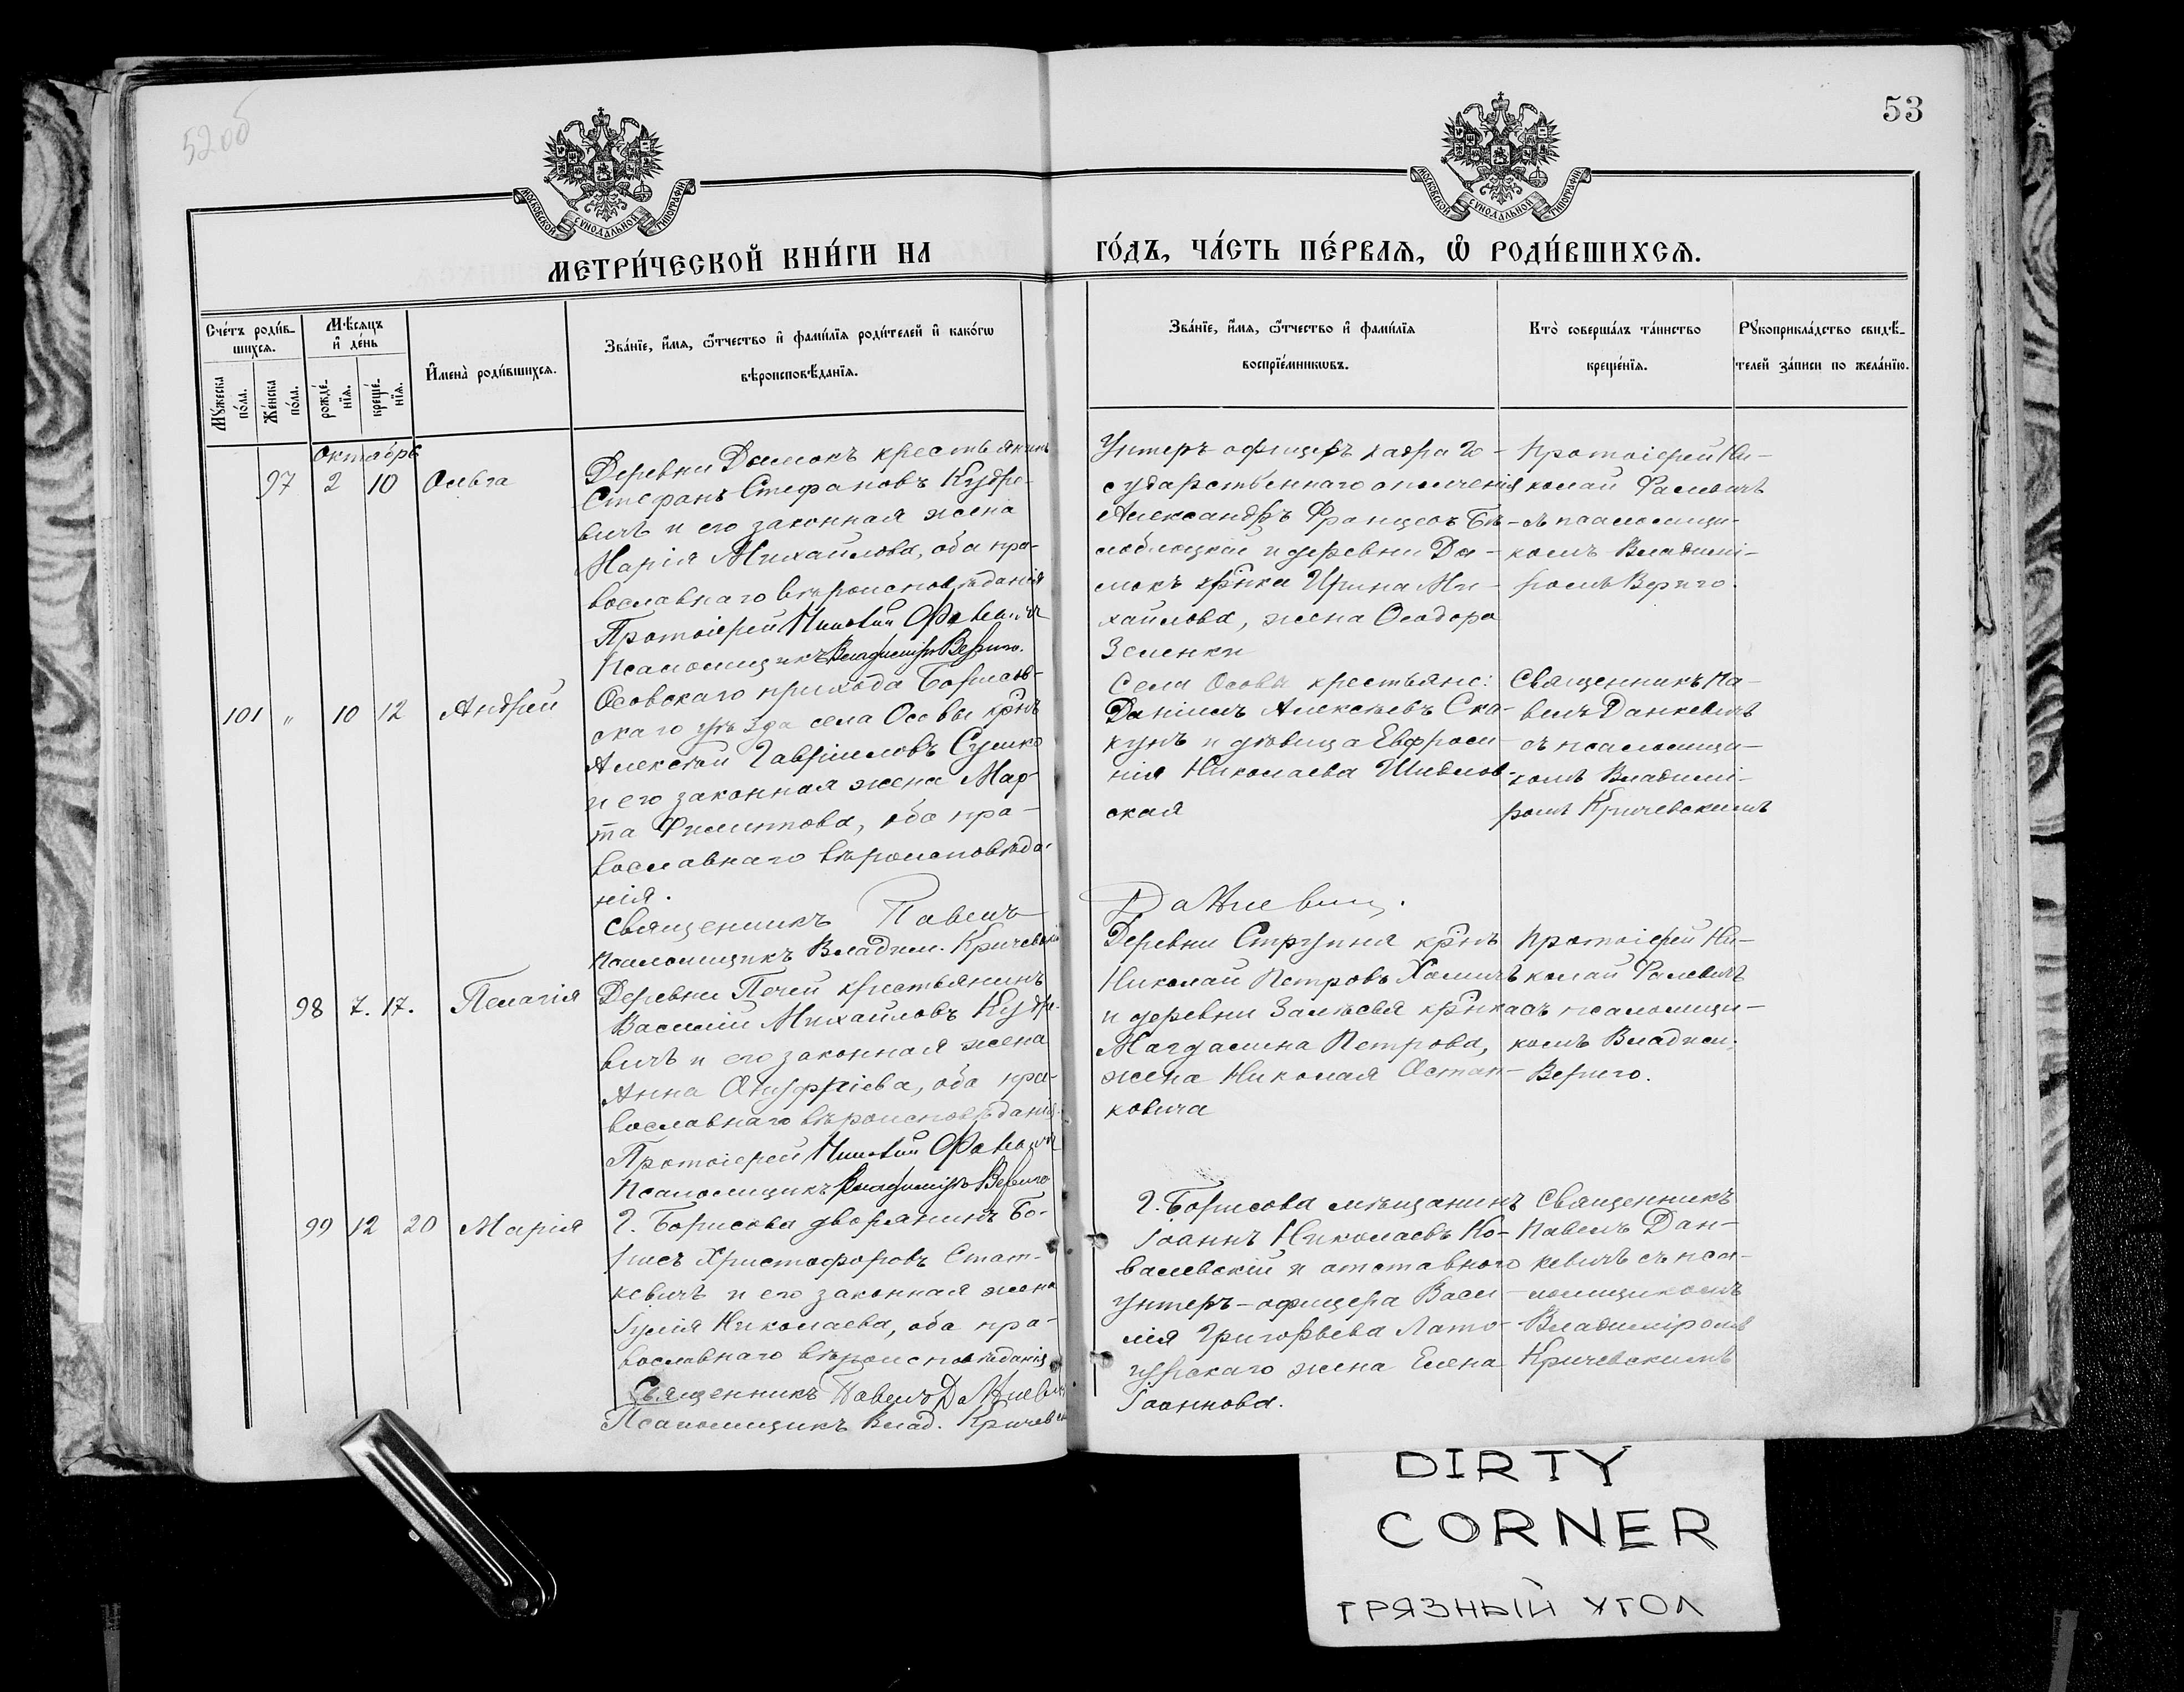 52об
53
МОСКОВСКОЙ СѴНОДАЛЬНОЙ ТИПОГРАФІИ
МОСКОВСКОЙ СѴНОДАЛЬНОЙ ТИПОГРАФІИ
МЕТРИ́ЧЕСКОЙ КНИ́ГИ НА ГО́ДЪ, ЧА́СТЬ ПЕ́РВАѦ, Ѡ РОДИ́ВШИХСѦ.
Сче́тъ роди́в-
шихся.
Мꙋ́жеска по́ла.
Же́нска по́ла.
Мѣ́сяцъ и҆ де́нь
рожде́нїя.
креще́нїя.
И҆мена̀ роди́вшихся.
Зва́нїе, и҆́мя, ѻ҆́тчество и҆ фами́лїя роди́телей и҆ како́гѡ
вѣроисповѣ́данїя.
Зва́нїе, и҆́мя, ѻ҆́тчество и҆ фами́лїя
воспрїе́мникѡвъ.
Кто̀ соверша́лъ та́инство
креще́нїя.
Рꙋкоприкла́дство свидѣ́-
телей за́писи по жела́нїю.
Октябрь
97 2 10 Ольга
Деревни Домокъ крестьянинъ
Стефанъ Стефановъ Кудре-
вичъ и его законная жена
Марія Михайлова, оба пра-
вославнаго вѣроисповѣданія
Протоіерей Николай Фалевичъ
Псаломщикъ Владиміръ Вериго.
Унтеръ-офицеръ кадра Го-
сударственнаго ополченія
Александръ Францевъ Бѣ-
лоблоцкій и деревни До-
мокъ кр-нка Ирина Ми-
хайлова, жена Ѳеодора
Зеленки
Протоіерей Ни-
колай Фалевичъ
съ псаломщи-
комъ Владимі-
ромъ Вериго.
101 " 10 12 Андрей
Осовскаго прихода Борисов-
скаго уѣзда села Осовы кр-нъ
Алексѣй Гавріиловъ Сушко
и его законная жена Мар-
та Филиппова, оба пра-
вославнаго вѣроисповѣда-
нія.
Священникъ Павелъ Данкевичъ.
Псаломщикъ Владим. Кричевскій
Села Осовы крестьяне:
Даніилъ Алексѣевъ Ска-
кунъ и дѣвица Евфроси-
нія Николаева Шидлов-
ская
Священникъ Па-
велъ Данкевичъ
съ псаломщи-
комъ Владимі-
ромъ Кричевскимъ
98 7. 17. Пелагія
Деревни Печей крестьянинъ
Василій Михайловъ Кудре-
вичъ и его законная жена
Анна Онуфріева, оба пра-
вославнаго вѣроисповѣданія.
Протоіерей Николай Фалевичъ
Псаломщикъ Владиміръ Вериго
Деревни Струпня кр-нъ
Николай Петровъ Хомичъ
и деревни Залѣсья кр-нка
Магдалина Петрова,
жена Николая Остап-
ковича
Протоіерей Ни-
колай Фалевичъ
съ псаломщи-
комъ Владим.
Вериго.
99 12 20 Марія
Г. Борисова дворянинъ Бо-
рисъ Христофоровъ Стат-
кевичъ и его законная жена
Іулія Николаева, оба пра-
вославнаго вѣроисповѣданія
Священникъ Павелъ Данкевичъ
Псаломщикъ Влад. Кричевскій
Г. Борисова мѣщанинъ
Іоаннъ Николаевъ Ко-
валевскій и отставного
унтеръ-офицера Васи-
лія Григорьева Лато-
гурскаго жена Елена
Іоаннова.
Священникъ
Павелъ Дан-
кевичъ съ пса-
ломщикомъ
Владиміромъ
Кричевскимъ
DIRTY
CORNER
ГРЯЗНЫЙ УГОЛ